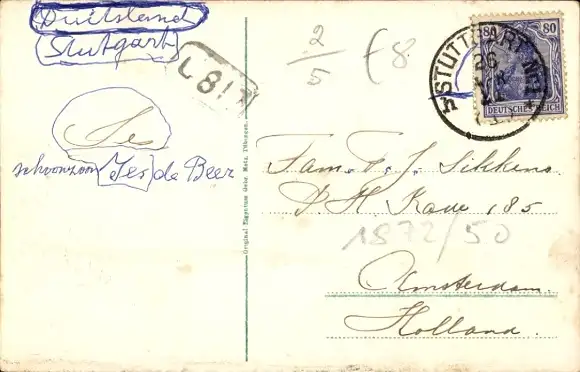 Duitsland
Stuttgart
L817
2/5
(8
80 80
STUTTGART
26
DEUTSCHES REICH
Jes
schoonzoon Jes de Beer
Original Eigentum Gebr. Metz, Tübingen.
Fam. T. J. Sikkens
P. H. Kade 185
1872/50
Amsterdam.
Holland.